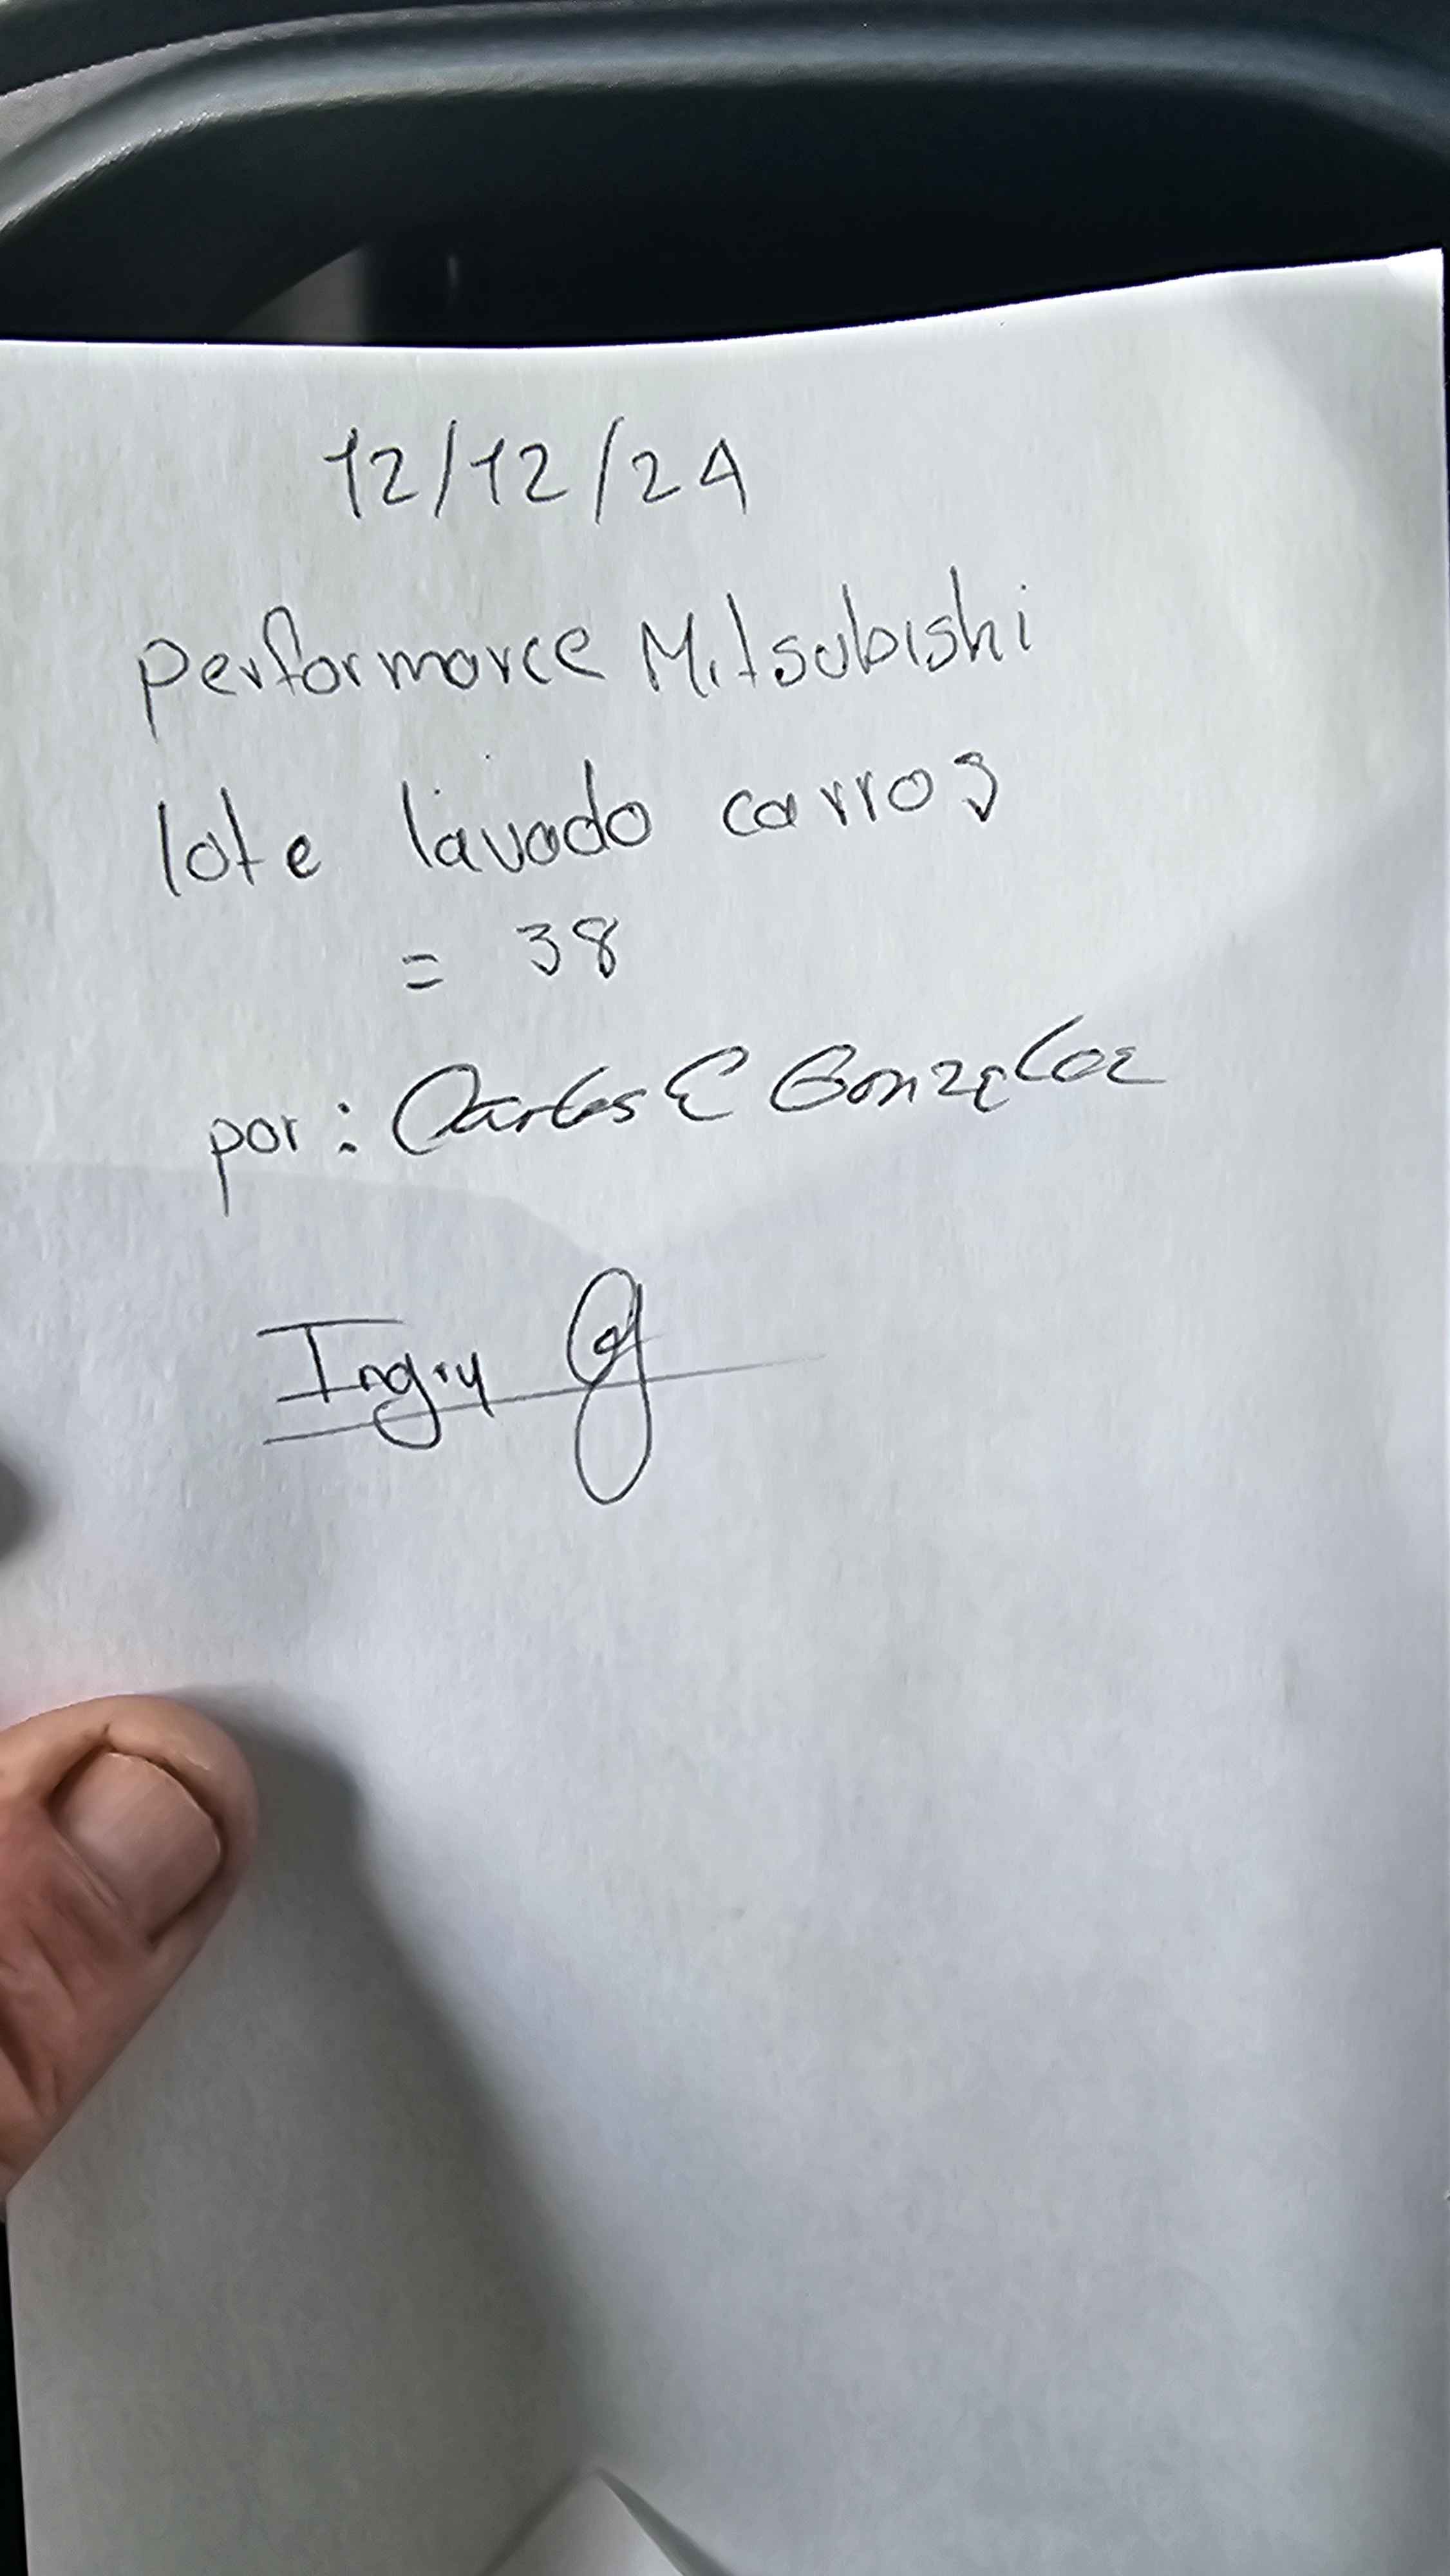 12/12/24
performance Mitsubishi
lote lavado carros
= 38
por: Carlos E Gonzalez